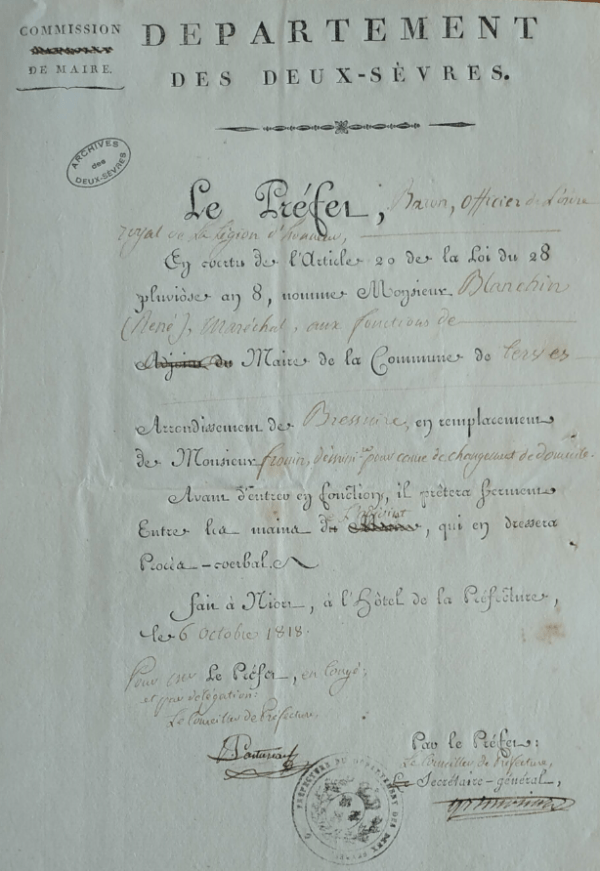 COMMISSION
DE MAIRE.
DEPARTEMENT
DES DEUX-SÈVRES.
ARCHIVES
des
DEUX-SÈVRES
Le Préfet, Baron, officier de l'ordre
royal de la Légion d'honneur,
En vertu de l'Article 20 de la Loi du 28
pluviôse an 8, nomme Monsieur Blanchin
(René), Maréchal, aux fonctions de
Adjoint du Maire de la Commune de Cerses
Arrondissement de Bressuire, en remplacement
de Monsieur frouin, démiss.re pour cause de changement de domicile.
Avant d'entrer en fonction, il prêtera serment
Entre les mains du, qui en dressera
Procès-verbal.
fait à Niort, à l'Hôtel de la Préfecture,
le 6 octobre 1818.
Pour Le Préfet, en Congé;
et par délégation:
Le Conseiller de Préfecture,
Par le Préfet:
Le Conseiller de Préfecture,
Le Secrétaire-général,
PRÉFECTURE DU DÉPARTEMENT DES DEUX SÈVRES